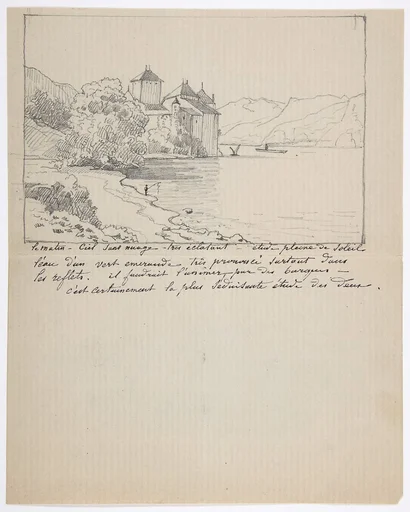 le matin - Ciel sans nuage - très éclatant - étude pleine de Soleil
l'eau d'un vert emeraude très prononcé surtout dans
les reflets. il faudrait l'animer par des barques -
c'est certainement la plus séduisante étude des deux.